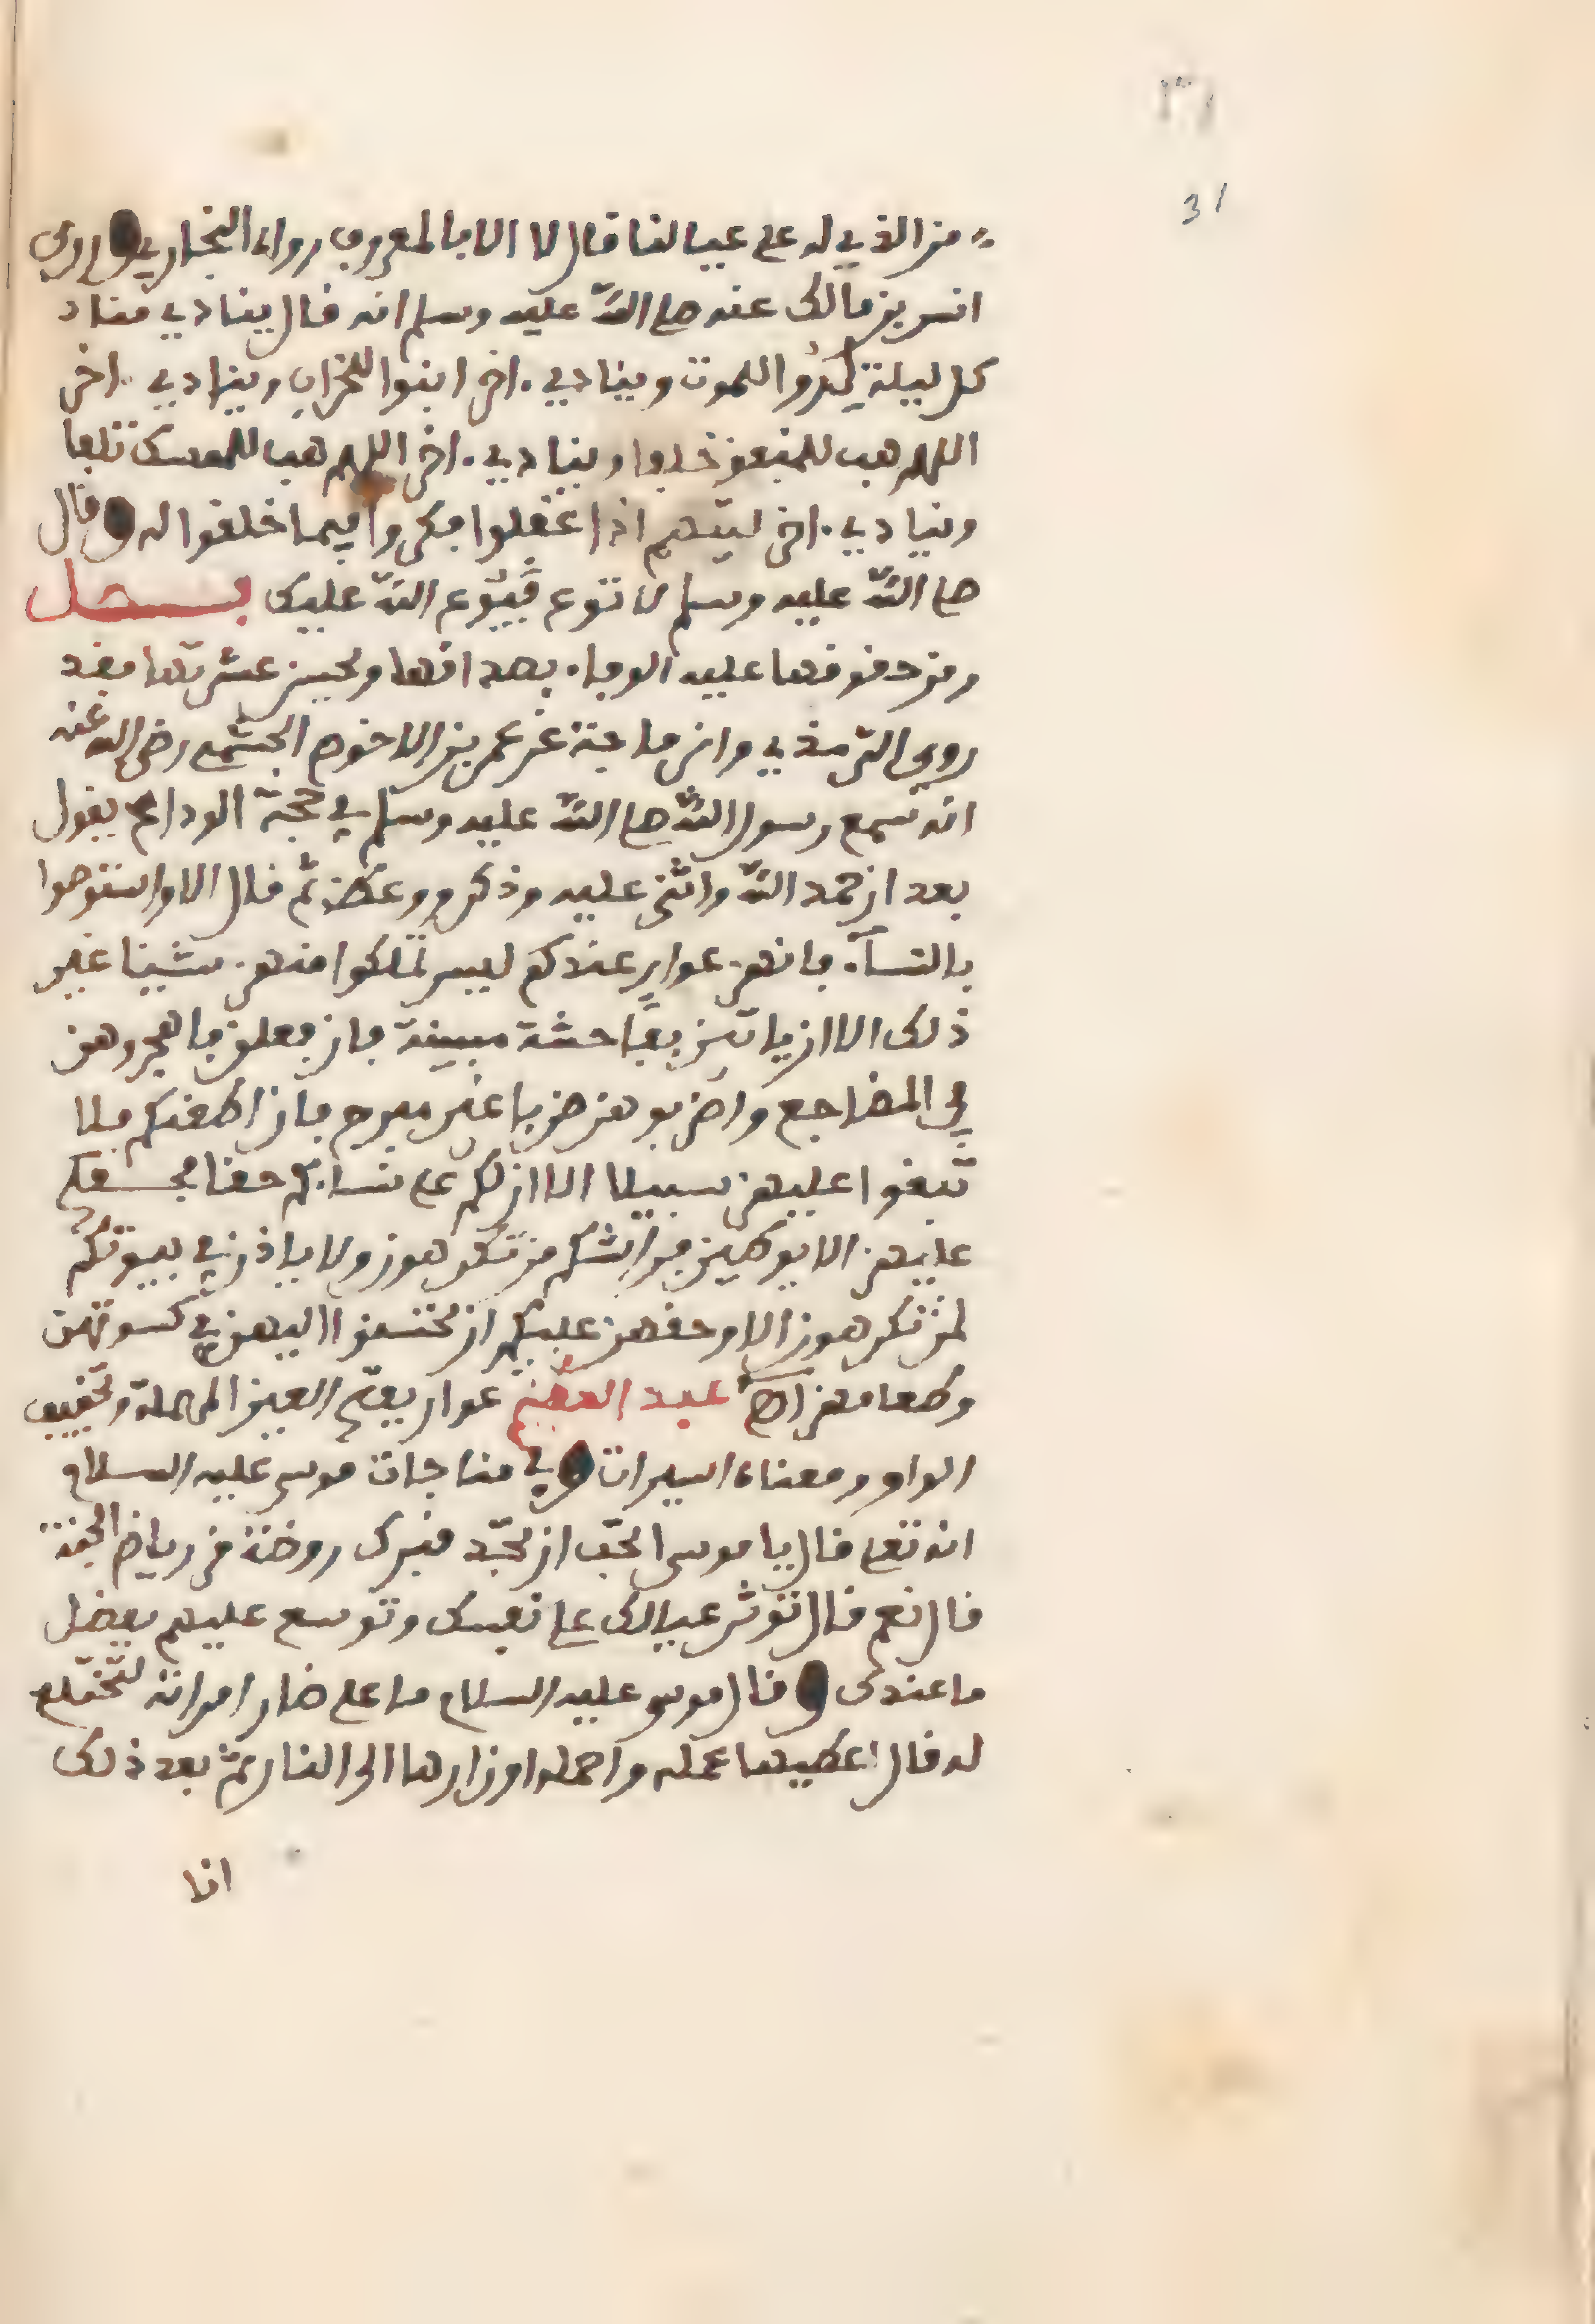 ٣١
31
من الذي له على عيالنا قال لا الا بالمعروف رواه البخاري وروى
انس بن مالك عنه صلى الله عليه وسلم انه قال ينادي مناد
كل ليلة لدوا للموت وينادي ءاخر ابنوا للخراب وينادي ءاخر
اللهم هب للمنفق خلفا وينادي ءاخر اللهم هب للممسك تلفا
وينادي ءاخر ليتهم اذا عقلوا فكروا فيما خلقوا له وقال
صلى الله عليه وسلم لا توع فيوع الله عليك فصل
ومن حقوقها عليه الوفاء بصداقها وتحسين عشرتها فقد
روى الترمذي وابن ماجة عن عمر بن الاخوص الجشمي رضي الله عنه
انه سمع رسول الله صلى الله عليه وسلم في حجة الوداع يقول
بعد ان حمد الله واثنى عليه وذكر ووعظ ثم قال الا واستوصوا
بالنساء فانهن عوار عندكم ليس تملكوا منهن شيئا غير
ذلك الا ان ياتين بفاحشة مبينة فان فعلن فاهجروهن
في المضاجع واضربوهن ضربا غير مبرح فان اطعنكم فلا
تبغوا عليهن سبيلا الا ان لكم على نسائكم حقا فحقكم
عليهن الا يوطين فراشكم من تكرهون ولا ياذن في بيوتكم
لمن تكرهون الا وحقهن عليكم ان تحسنوا اليهن في كسوتهن
وطعامهن اهـ عبد العظيم عوار بفتح العين المهملة وتخفيف
الواو ومعناه اسيرات وفي مناجات موسى عليه السلام
انه تعلى قال يا موسى اتحب ان تجد قبرك روضة من رياض الجنة
قال نعم قال توثر عيالك على نفسك وتوسع عليهم بفضل
ما عندك وقال موسى عليه السلام ما على ضار امراته لتختلع
له قال اعطيها عمله واحمله اوزارها الى النار ثم بعد ذلك
انا